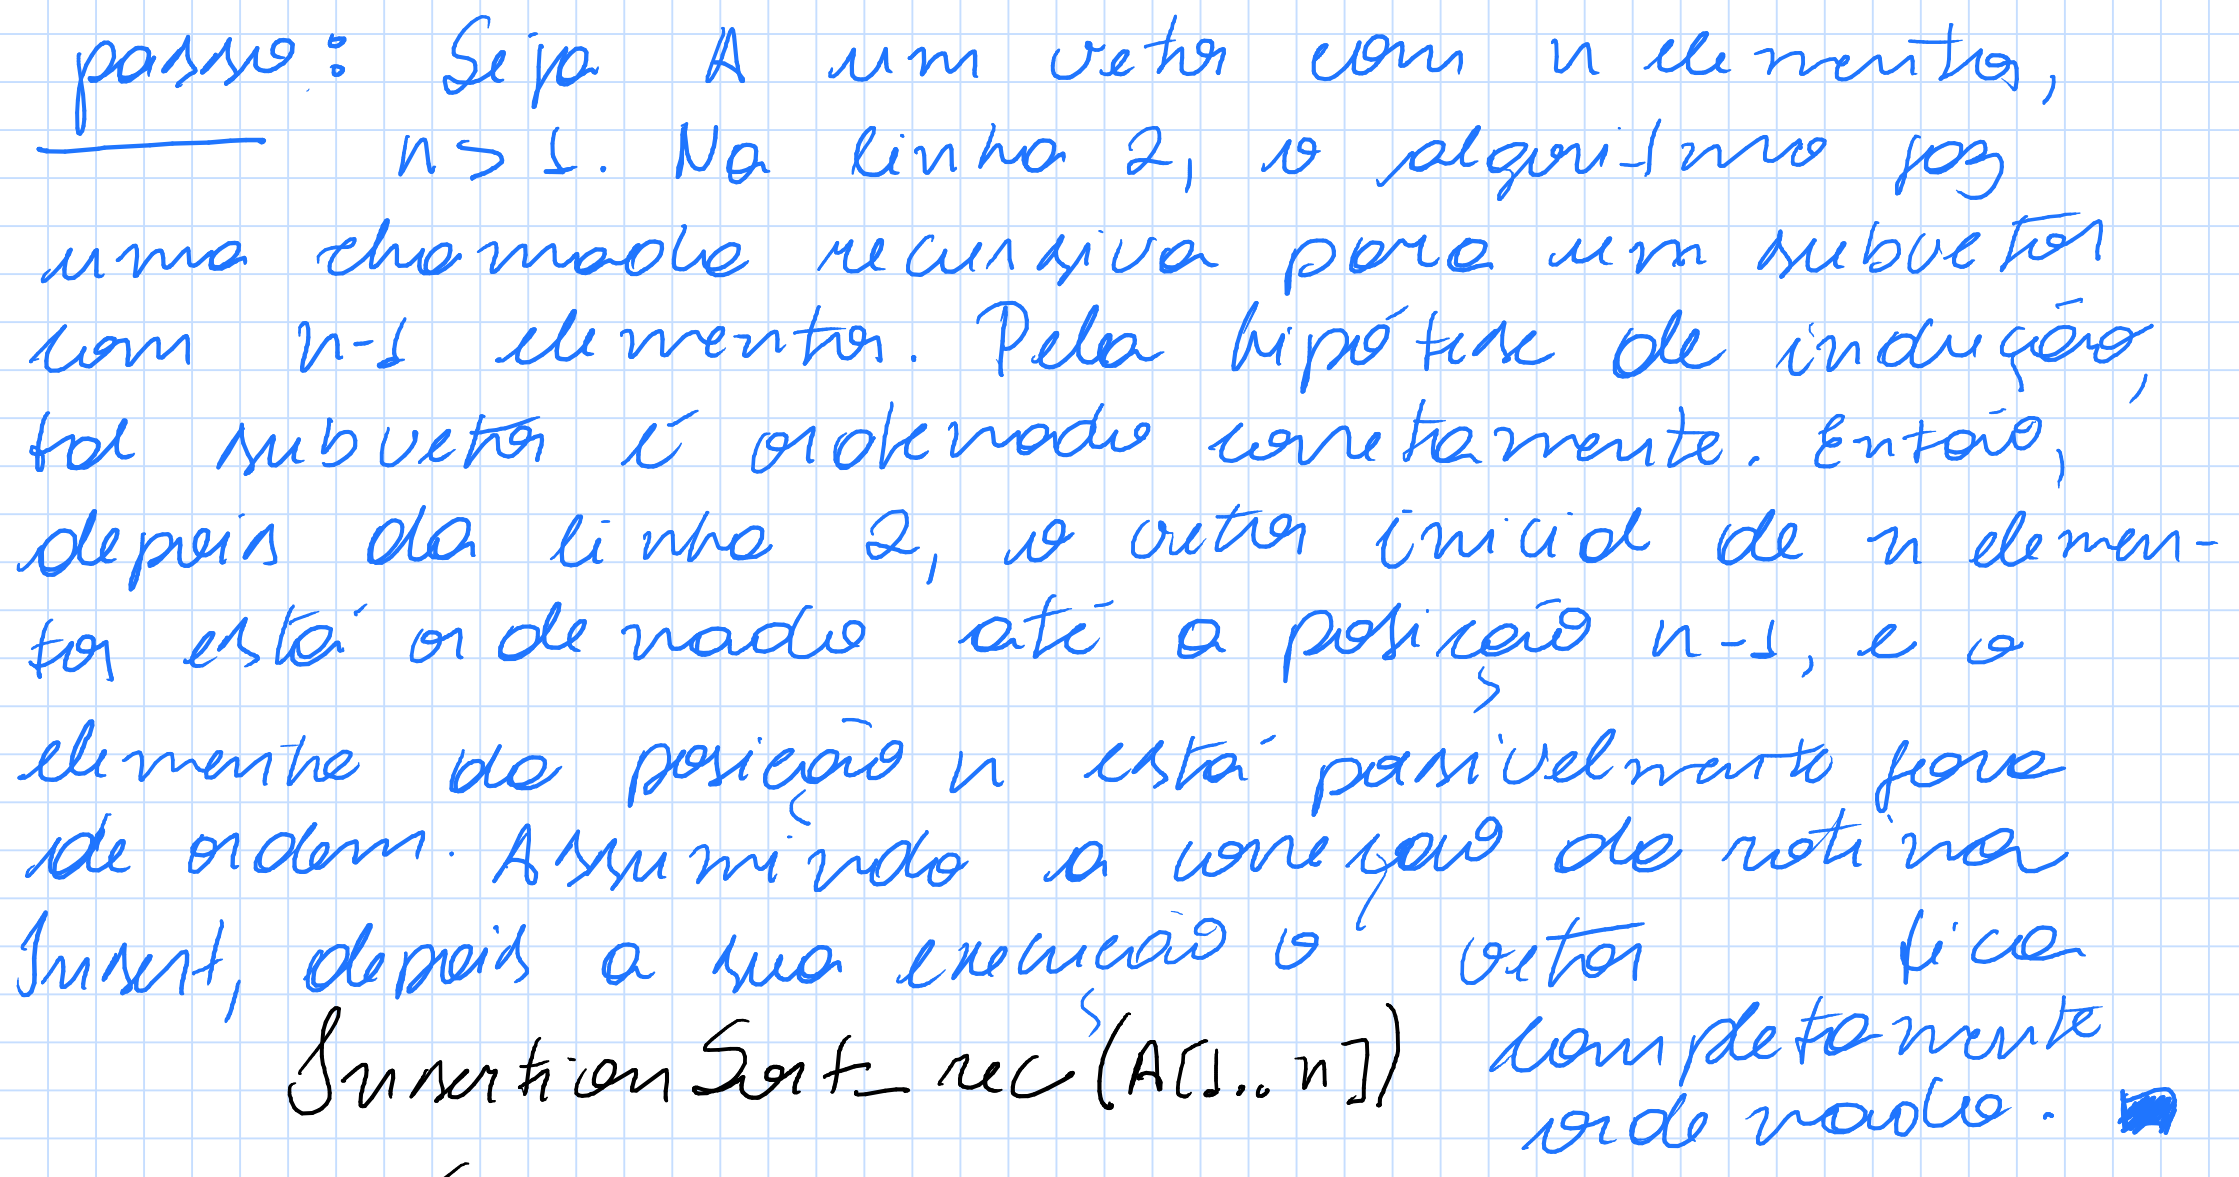 passo: Seja A um vetor com n elementos,
n > 1. Na linha 2, o algoritmo faz
uma chamada recursiva para um subvetor
com n-1 elementos. Pela hipótese de indução,
tal subvetor é ordenado corretamente. Então,
depois da linha 2, o vetor inicial de n elemen-
tos está ordenado até a posição n-1, e o
elemento da posição n está possivelmente fora
de ordem. Assumindo a correção da rotina
Insert, depois a sua execução o vetor fica
completamente
ordenado.
InsertionSort_rec(A[1..n])